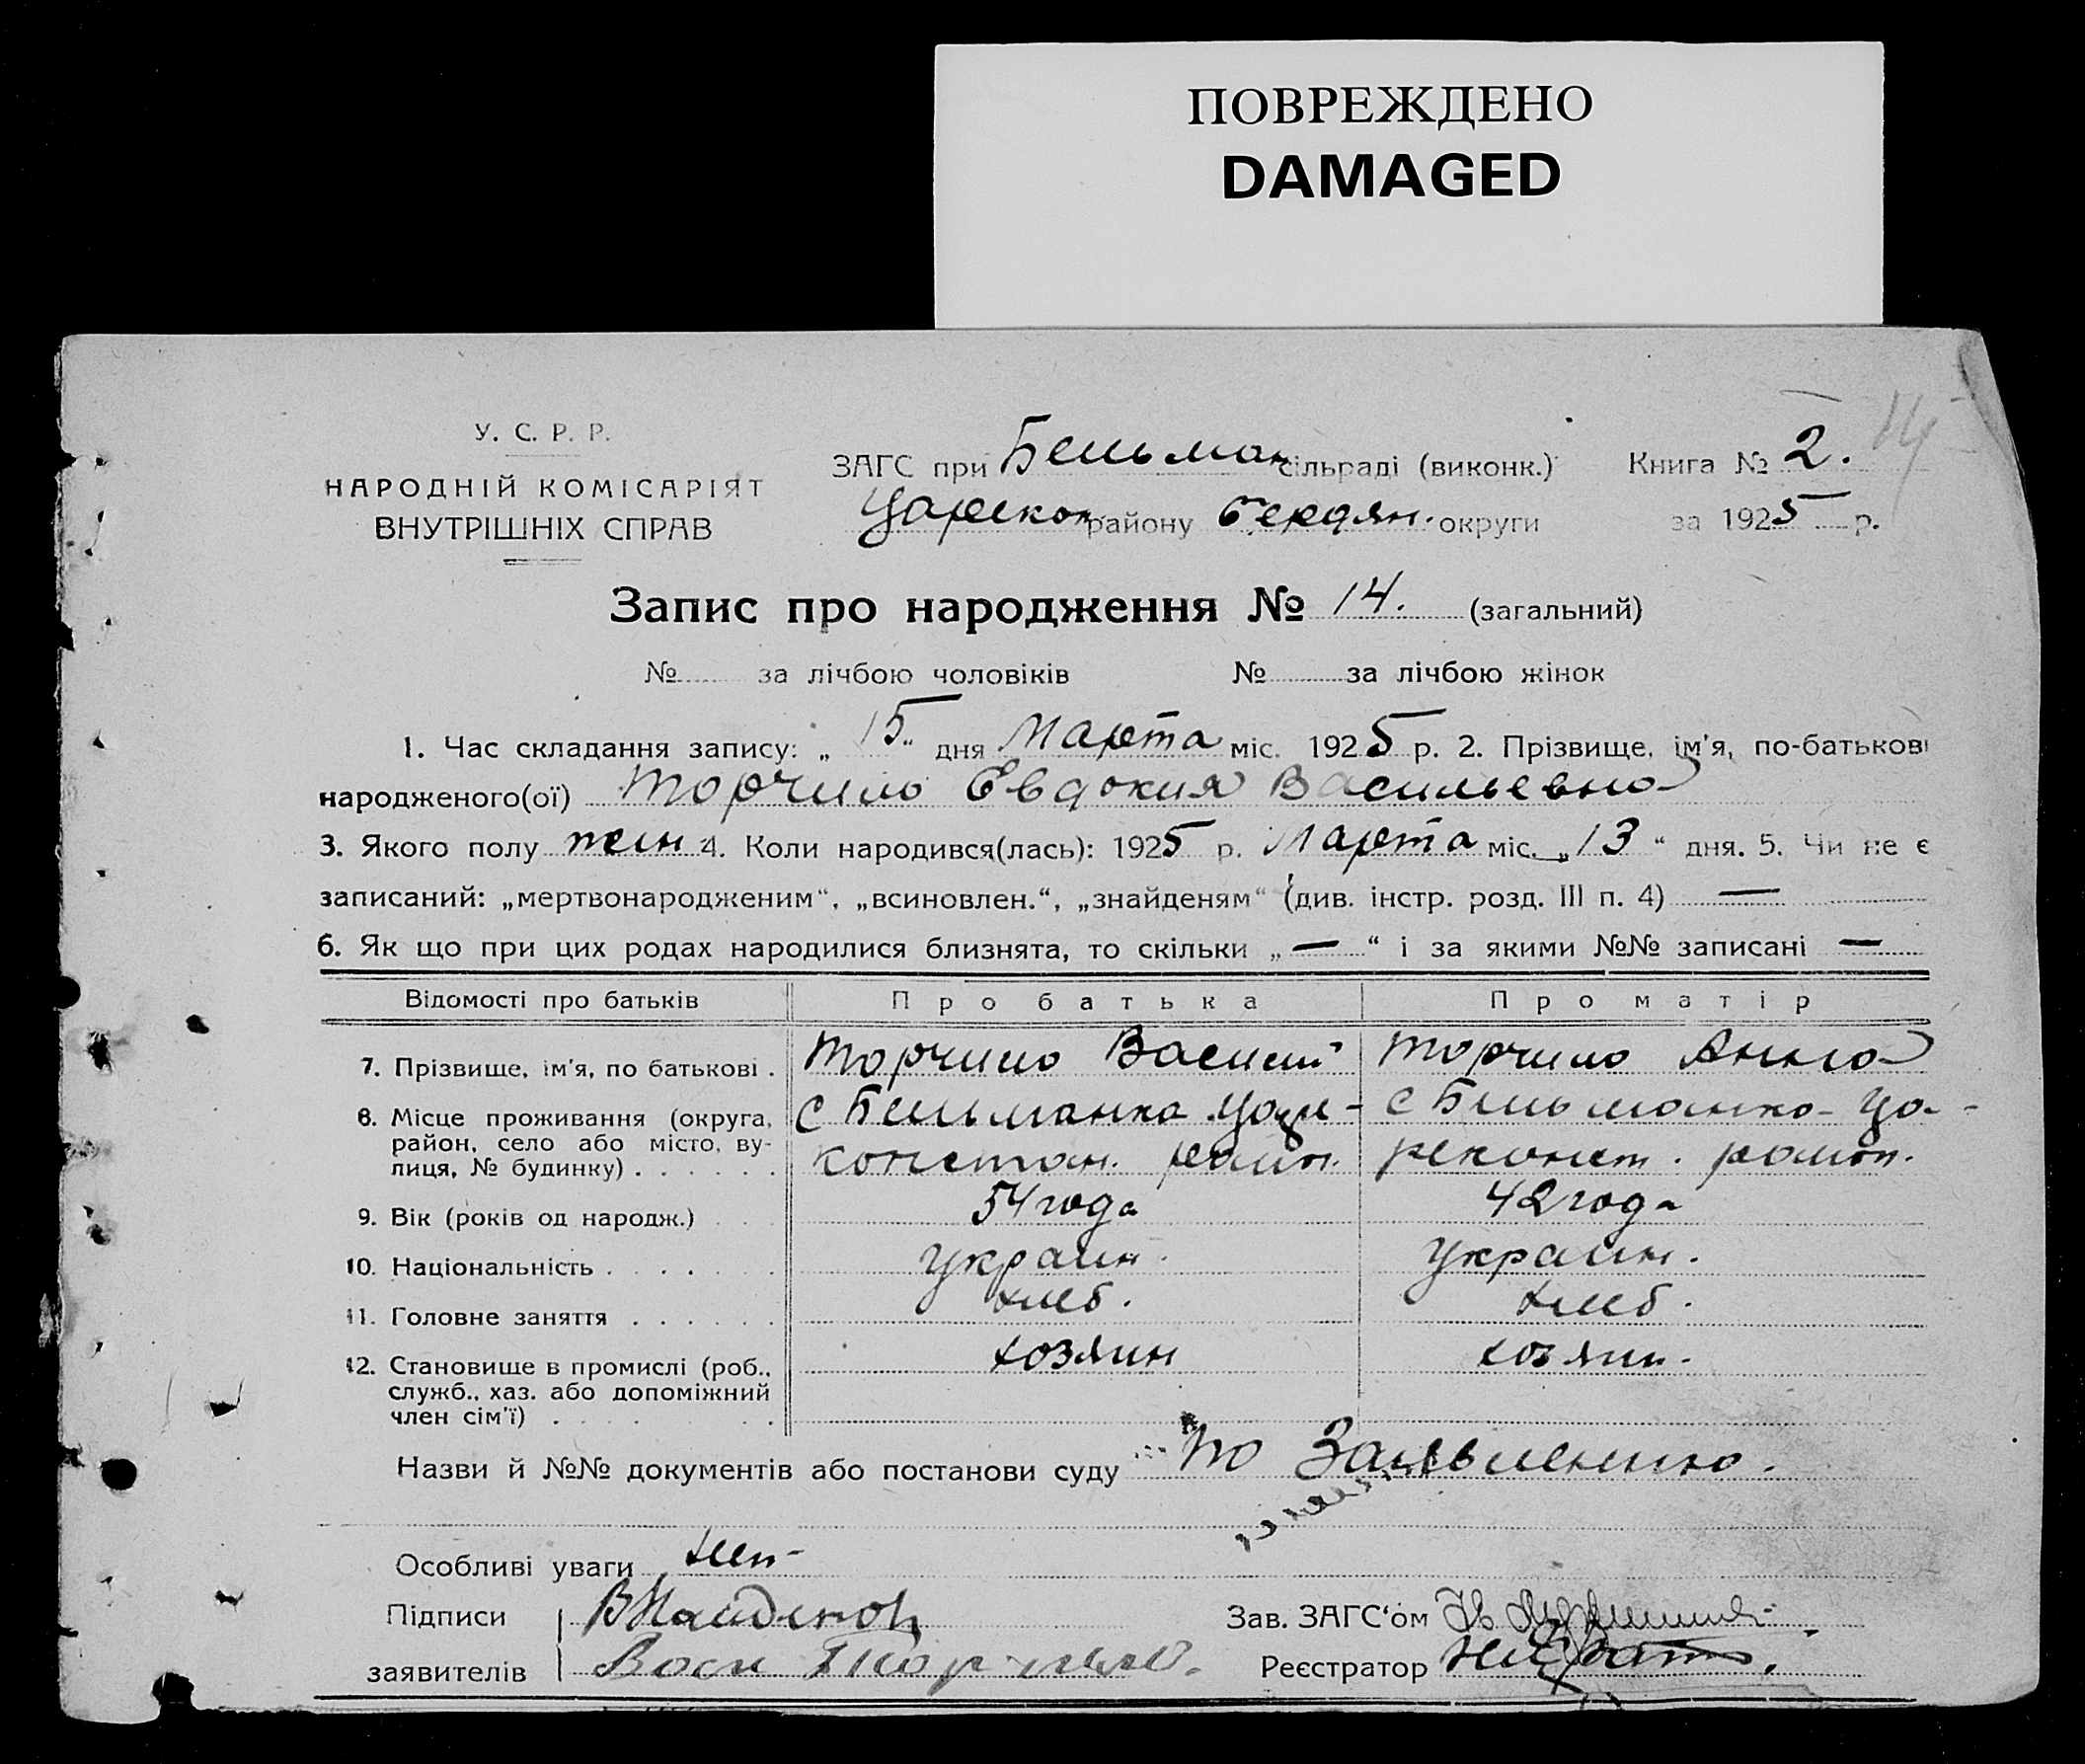 ПОВРЕЖДЕНО
DAMAGED
У. С. Р. Р.
НАРОДНІЙ КОМІСАРІЯТ
ВНУТРІШНІХ СПРАВ
ЗАГС при Бельман сільраді (виконк.)
Царекон району Бердян. округи
Книга № 2.
за 1925 р.
14
Запис про народження № 14. (загальний)
№ за лічбою чоловіків № за лічбою жінок
1. Час складання запису: „ 15 “ дня Марта міс. 1925 р. 2. Прізвище, ім'я, по-батькові
народженого(ої) Торчило Евдокия Васильевна
3. Якого полу жен 4. Коли народився(лась): 1925 р. Марта міс. „ 13 “ дня. 5. Чи не є
записаний: „мертвонародженим“, „всиновлен.“, „знайденям“ (див. інстр. розд. III п. 4) —
6. Як що при цих родах народилися близнята, то скільки „ — “ і за якими №№ записані —
Відомості про батьків Про батька Про матір
7. Прізвище, ім'я, по батькові . Торчило Василий Торчило Анна
8. Місце проживання (округа, район, село або місто, вулиця, № будинку) . . . . . .
с Бельманка Царе-
констан. район.
с Бельманка Ца-
реконст. район.
9. Вік (років од народж.) 54 года 42 года
10. Національність . . . . . Украин. Украин.
11. Головне заняття . . . . . . хлеб. хлеб.
12. Становище в промислі (роб., служб., хаз. або допоміжний член сім'ї) . . . . .
хозяин хозяин.
Назви й №№ документів або постанови суду По Заявлению.
Особливі уваги нет-
Підписи
заявителів
В Найденов
Васи Торчило.
Зав. ЗАГС'ом
Реєстратор